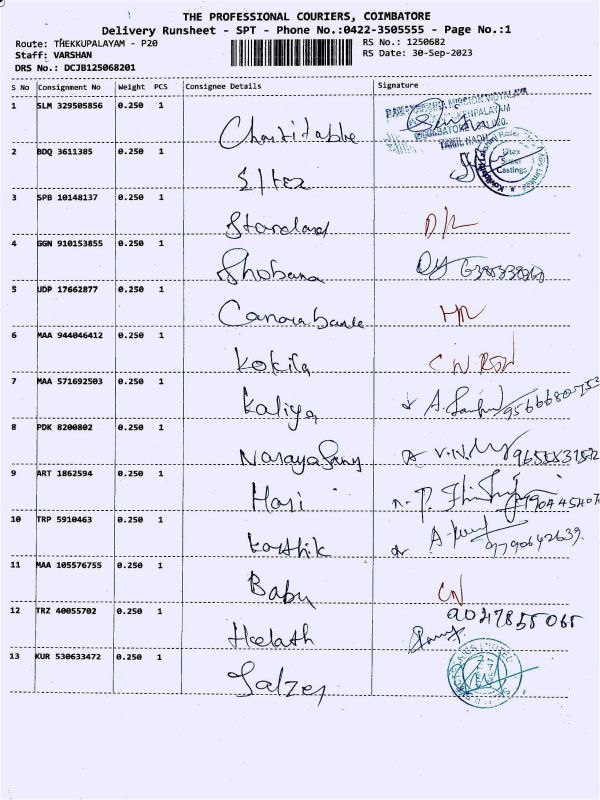 THE PROFESSIONAL COURIERS, COIMBATORE
Delivery Runsheet - SPT - Phone No.:0422-3505555 - Page No.:1
Route: THEKKUPALAYAM - P20 RS No.: 1250682
Staff: VARSHAN RS Date: 30-Sep-2023
DRS No.: DCJB125068201
S No Consignment No Weight PCS Consignee Details Signature
1 SLM 329505856 0.250 1
Charitable
COIMBATORE
TAMIL NADU
2 BDQ 3611385 0.250 1
Eltex
Eltex Super Castings
3 SPB 10148137 0.250 1
Standard D/L
4 GGN 910153855 0.250 1
Shobana
5 UDP 17662877 0.250 1
Canara bank
6 MAA 944046412 0.250 1
Kokila CN
7 MAA 571692503 0.250 1
Kaliya
8 PDK 8200802 0.250 1
Narayasamy
9 ART 1862594 0.250 1
Hari
10 TRP 5910463 0.250 1
Karthik 9790642639.
11 MAA 105576755 0.250 1
Babu CN
12 TRZ 40055702 0.250 1 9047855065
Heelath
13 KUR 530633472 0.250 1
Salzer